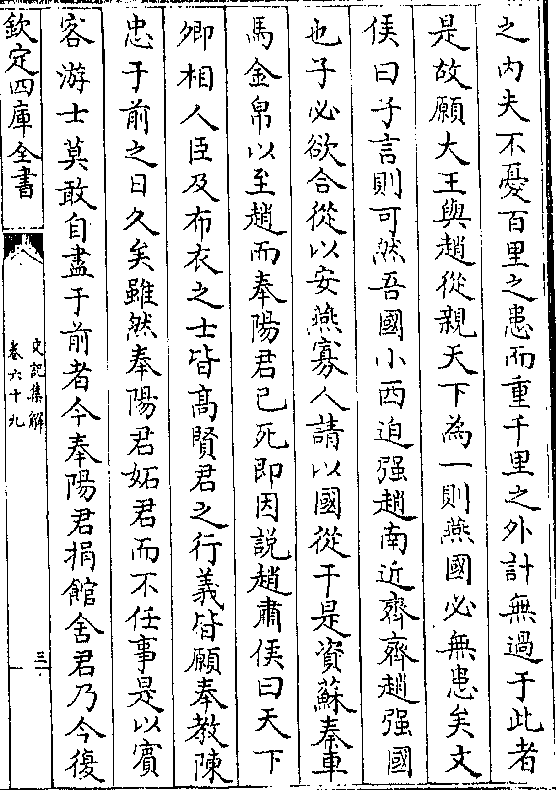 之内夫不憂百里之患而重千里之外計無過于此者
是故願大王與趙從親天下為一則燕國必無患矣文
侯曰子言則可然吾國小西迫强趙南近齊齊趙强國
也子必欲合從以安燕寡人請以國從于是資蘇秦車
馬金帛以至趙而奉陽君已死即因説趙肅侯曰天下
卿相人臣及布衣之士皆高賢君之行義皆願奉教陳
忠于前之日久矣雖然奉陽君妬君而不任事是以賓
客游士莫敢自盡于前者今奉陽君捐館舍君乃今復
欽定四庫全書
史記集解
卷六十九
三